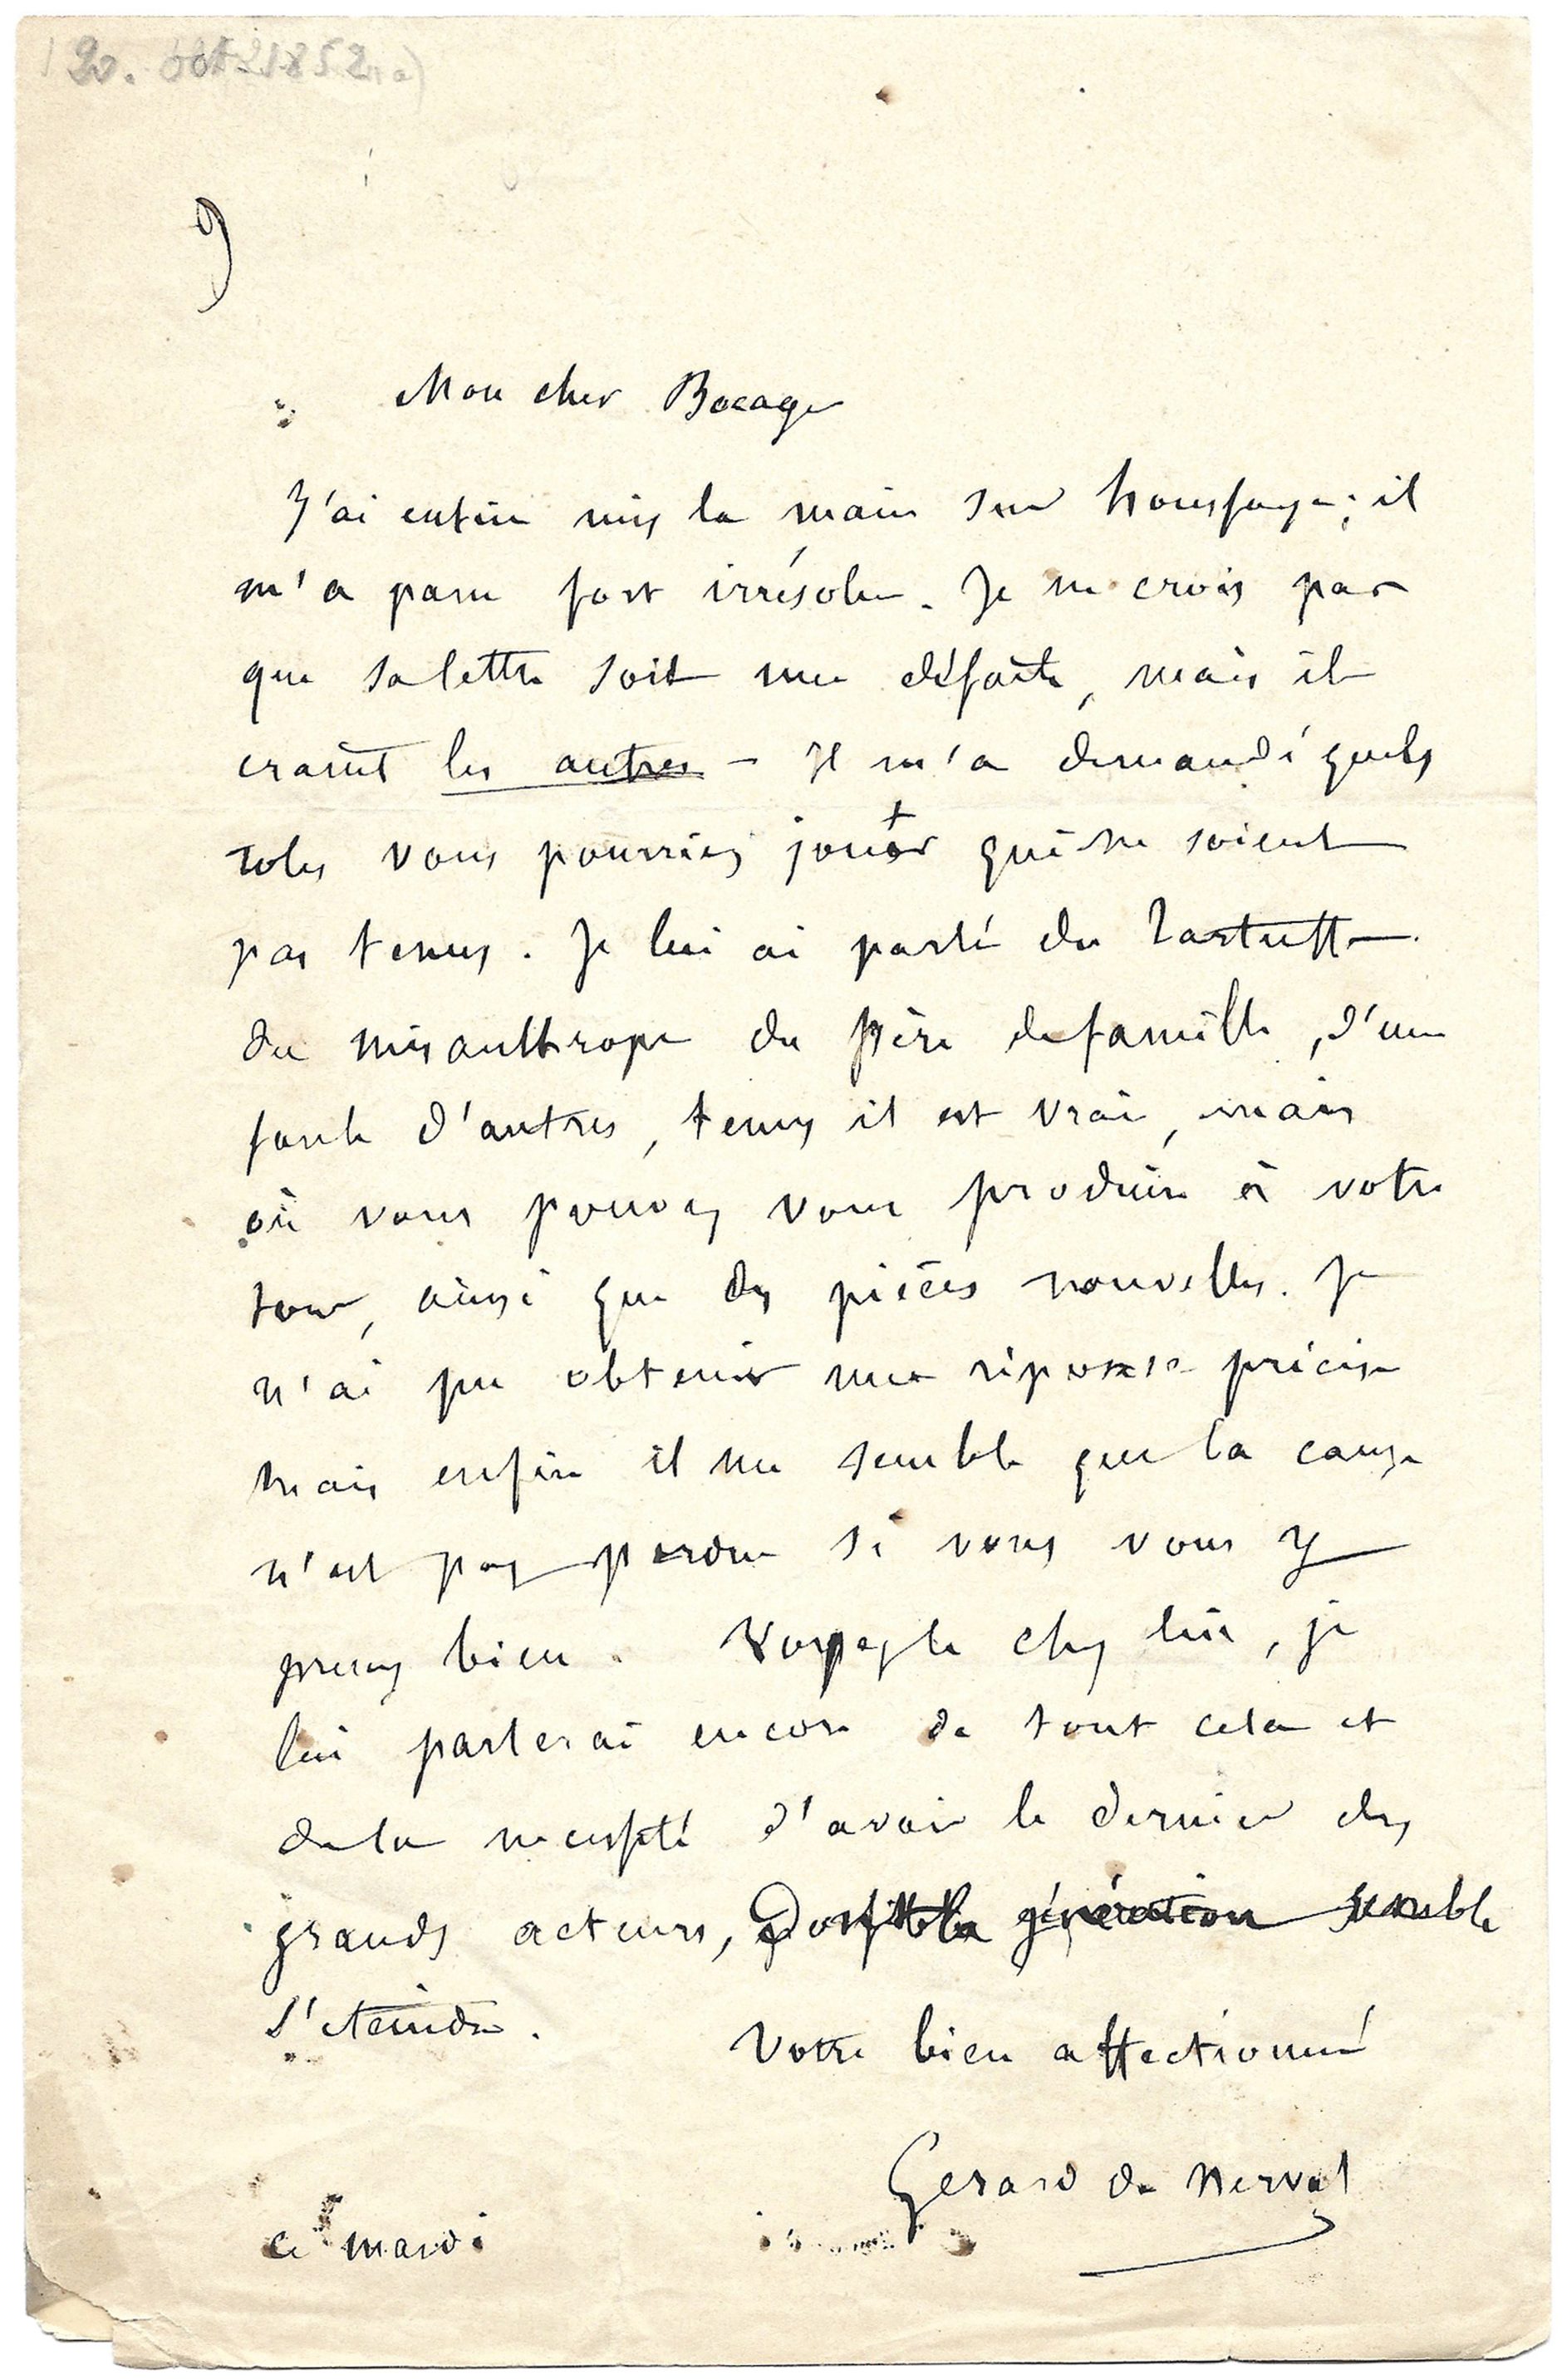 20. oct 1852
9
Mon cher Bocage
J'ai enfin mis la main sur houssaye; il
m'a paru fort irrésolu. Je ne crois pas
que sa lettre soit une défaite, mais il
craint les autres – Il m'a demandé quels
roles vous pourriez jouer qui ne soient
pas tenus. Je lui ai parlé du Tartuffe
du misanthrope du père de famille, d'une
foule d'autres, tenus il est vrai, mais
où vous pouvez vous produire à votre
tour, ainsi que des pièces nouvelles. Je
n'ai pu obtenir une réponse précise
mais enfin il me semble que la cause
n'est pas perdue si vous vous y
prenez bien. Voyez le chez lui, je
lui parlerai encore de tout cela et
de la necessité d'avoir le dernier des
grands acteurs, dont la génération semble
s'eteindre.
Votre bien affectionné
Gerard de Nerval
ce mardi